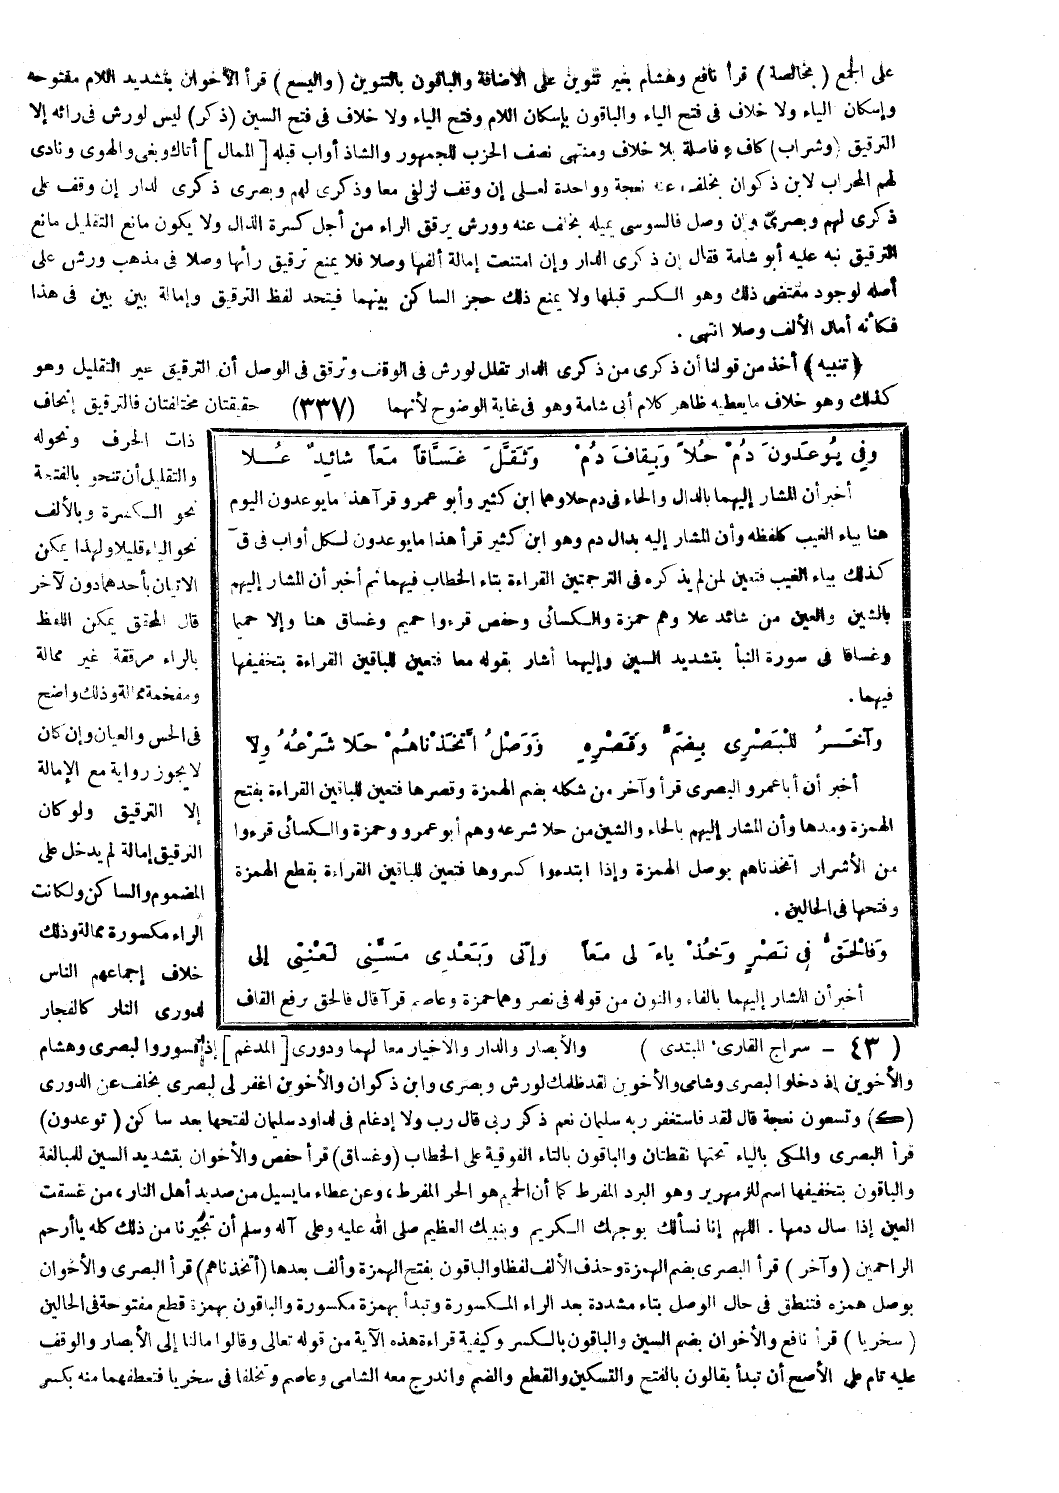 على الجمع ( بخالصة ) قرأ نافع وهشام بغير تنوين على الاضافة والباقون بالتنوين ( واليسع ) قرأ الأخوان بتشديد اللام مفتوحه
وإسكان الياء ولا خلاف فى فتح الياء والباقون بإسكان اللام وفتح الياء ولا خلاف فى فتح السين (ذكر) ليس لورش فى رائه إلا
الترقيق (وشراب) كاف وفاصلة بلا خلاف ومنتهى نصف الحزب للجمهور والشاذ أواب قبله [ الممال ] أتاك وبغى والهوى ونادى
لهم المحراب لابن ذكوان بخلف عنه نعجة وواحدة لعلى إن وقف لزلفى معا وذكرى لهم وبصرى ذكرى لدار إن وقف على
ذكرى لهم وبصرىّ وإن وصل فالسوسى يميله بخلف عنه وورش يرقق الراء من أجل كسرة الذال ولا يكون مانع التقليل مانع
الترقيق نبه عليه أبو شامة فقال إن ذكرى الدار وإن امتنعت إمالة ألفها وصلا فلا يمنع ترقيق رائها وصلا فى مذهب ورش على
أصله لوجود مقتضى ذلك وهو الكسر قبلها ولا يمنع ذلك حجز الساكن بينهما فيتحد لفظ الترقيق وإمالة بين بين فى هذا
فكأنه أمال الألف وصلا انتهى .
﴿تنبيه﴾ أخذ من قولنا أن ذكرى من ذكرى الدار تقلل لورش فى الوقف وترقق فى الوصل أن الترقيق غير التقليل وهو
كذلك وهو خلاف ما يعطيه ظاهر كلام أبى شامة وهو فى غاية الوضوح لأنهما (٣٣٧) حقيقتان مختلفتان فالترقيق إنحاف
ذات الحرف ونحوله
والتقليل أن تنحو بالفتحة
نحو الكسرة وبالألف
نحو الياء قليلا ولهذا يمكن
الاتيان بأحدهما دون لآخر
قال المحقق يمكن اللفظ
بالراء مرققة غير ممالة
ومفخمة ممالة وذلك واضح
فى الحس والعيان وإن كان
لا يجوز رواية مع الإمالة
إلا الترقيق ولو كان
الترقيق إمالة لم يدخل على
المضموم والساكن ولكانت
الراء مكسورة ممالة وذلك
خلاف إجماعهم الناس
لدورى النار كالفجار
وفِي يُوعَدُونَ دُمْ حُلاً وَبِقَافَ دُمْ وَثَقَّلَ غَسَّاقاً مَعاً شَائِدٌ عُـلا
أخبر أن المشار إليهما بالدال والحاء فى دم حلا وهما ابن كثير وأبو عمرو قرآ هذا ما يوعدون اليوم
هنا بياء الغيب كلفظه وأن المشار إليه بدال دم وهو ابن كثير قرأ هذا ما يوعدون لكل أواب فى قٓ
كذلك بياء الغيب فتعين لمن لم يذكره فى الترجمتين القراءة بتاء الخطاب فيهما ثم أخبر أن المشار إليهم
بالشين والعين من شائد علا وهم حمزة والكسائى وحفص قرءوا حميم وغساق هنا وإلا حميما
وغساقا فى سورة النبأ بتشديد السين وإليهما أشار بقوله معا فتعين للباقين القراءة بتخفيفها
فيهما .
وآخَـرُ لِلْبَصْرِى بِضَمٍّ وَقَصْرِهِ وَوَصْلُ أَتَّخَذْنَاهُمْ حَلا شَرْعُهُ وِلا
أخبر أن أبا عمرو البصرى قرأ وآخر من شكله بضم الهمزة وقصرها فتعين للباقين القراءة بفتح
الهمزة ومدها وأن المشار إليهم بالحاء والشين من حلا شرعه وهم أبو عمرو وحمزة والكسائى قرءوا
من الأشرار اتخذناهم بوصل الهمزة وإذا ابتدءوا كسروها فتعين للباقين القراءة بقطع الهمزة
وفتحها فى الحالين .
وَفَالْحَقُّ فِي نَصْرٍ وَخُذْ يَاءَ لِى مَعاً وإِنِّى وَبَعْدِى مَسَّنِى لَعْنَتِى إلى
أخبر أن المشار إليهما بالفاء والنون من قوله فى نصر وهما حمزة وعاصم قرآ قال فالحق برفع القاف
( ٤٣ - سراج القارىء المبتدى ) والأبصار والدار والأخيار معا لهما ودورى [ المدغم ] إذ تسوروا لبصرى وهشام
والأخوين إذ دخلوا لبصرى وشامى والأخوين لقد ظلمك لورش وبصرى وابن ذكوان والأخوين اغفر لى لبصرى بخلف عن الدورى
(ك) وتسعون نعجة قال لقد فاستغفر ربه سليمان نعم ذكر ربى قال رب ولا إدغام فى لداود سليمان لفتحها بعد ساكن ( توعدون)
قرأ البصرى والمكى بالياء تحتها نقطتان والباقون بالتاء الفوقية على الخطاب (وغساق) قرأ حفص والأخوان بتشديد السين للمبالغة
والباقون بتخفيفها اسم للزمهرير وهو البرد المفرط كما أن الحميم هو الحر المفرط، وعن عطاء ما يسيل من صديد أهل النار، من غسقت
العين إذا سال دمها . اللهم إنا نسألك بوجهك الكريم وبنبيك العظيم صلى الله عليه وعلى آله وسلم أن تجيرنا من ذلك كله يا أرحم
الراحمين ( وآخر ) قرأ البصرى بضم الهمزة وحذف الألف لفظا والباقون بفتح الهمزة وألف بعدها (أتخذناهم) قرأ البصرى والأخوان
بوصل همزه فتنطق فى حال الوصل بتاء مشددة بعد الراء المكسورة وتبدأ بهمزة مكسورة والباقون بهمزة قطع مفتوحة فى الحالين
( سخريا ) قرأ نافع والأخوان بضم السين والباقون بالكسر وكيفية قراءة هذه الآية من قوله تعالى وقالوا مالنا إلى الأبصار والوقف
عليه تام على الأصح أن تبدأ بقالون بالفتح والتسكين والقطع والضم واندرج معه الشامى وعاصم وتخلفا فى سخريا فتعطفهما منه بكسر